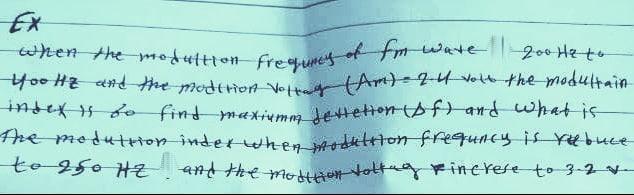 Ex
when the modulttion frequncy of fm wave 200 Hz to
400 Hz and the modttion Voltag (Am) = 2.4 volt the modultain
index is 60 find maxiumm devietion (Δf) and what is
The moduttion index when modultion frequncy is rebuce
to 250 Hz and the modttion voltag increse to 3.2 v.